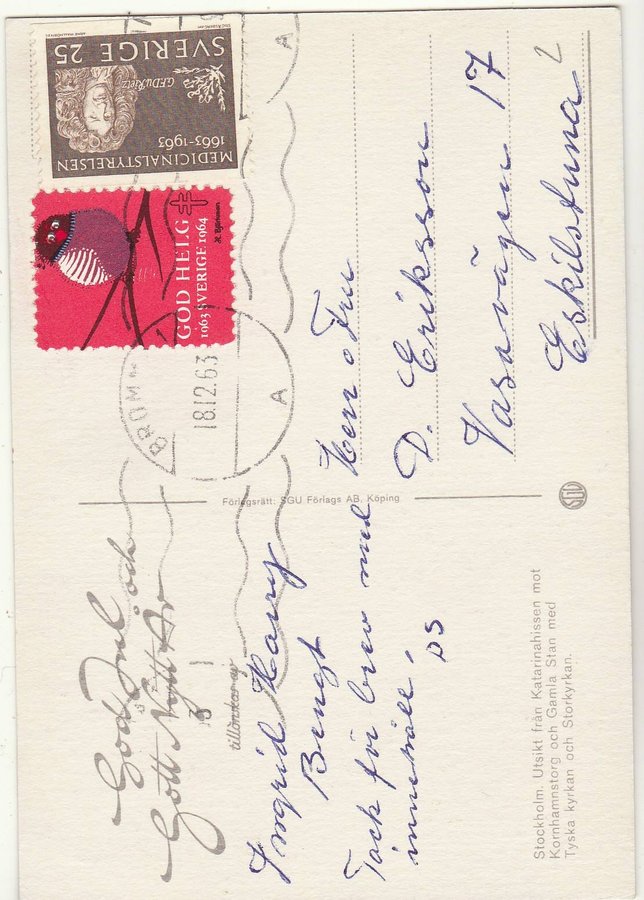 God Jul och
Gott Nytt År
tillönskar eg
Ingrid Harry
Bengt
Tack för brev med
innehåll.
DS
Stockholm. Utsikt från Katarinahissen mot
Kornhamnstorg och Gamla Stan med
Tyska kyrkan och Storkyrkan.
Förlagsrätt: SGU Förlags AB, Köping
SGU
SVERIGE 25
G.F.DuRietz
1663-1963
MEDICINALSTYRELSEN
GOD HELG
1963 SVERIGE 1964
BROMM
18.12.63
A
A
Herr o Fru
D. Eriksson
Vasavägen 17
Eskilstuna 2